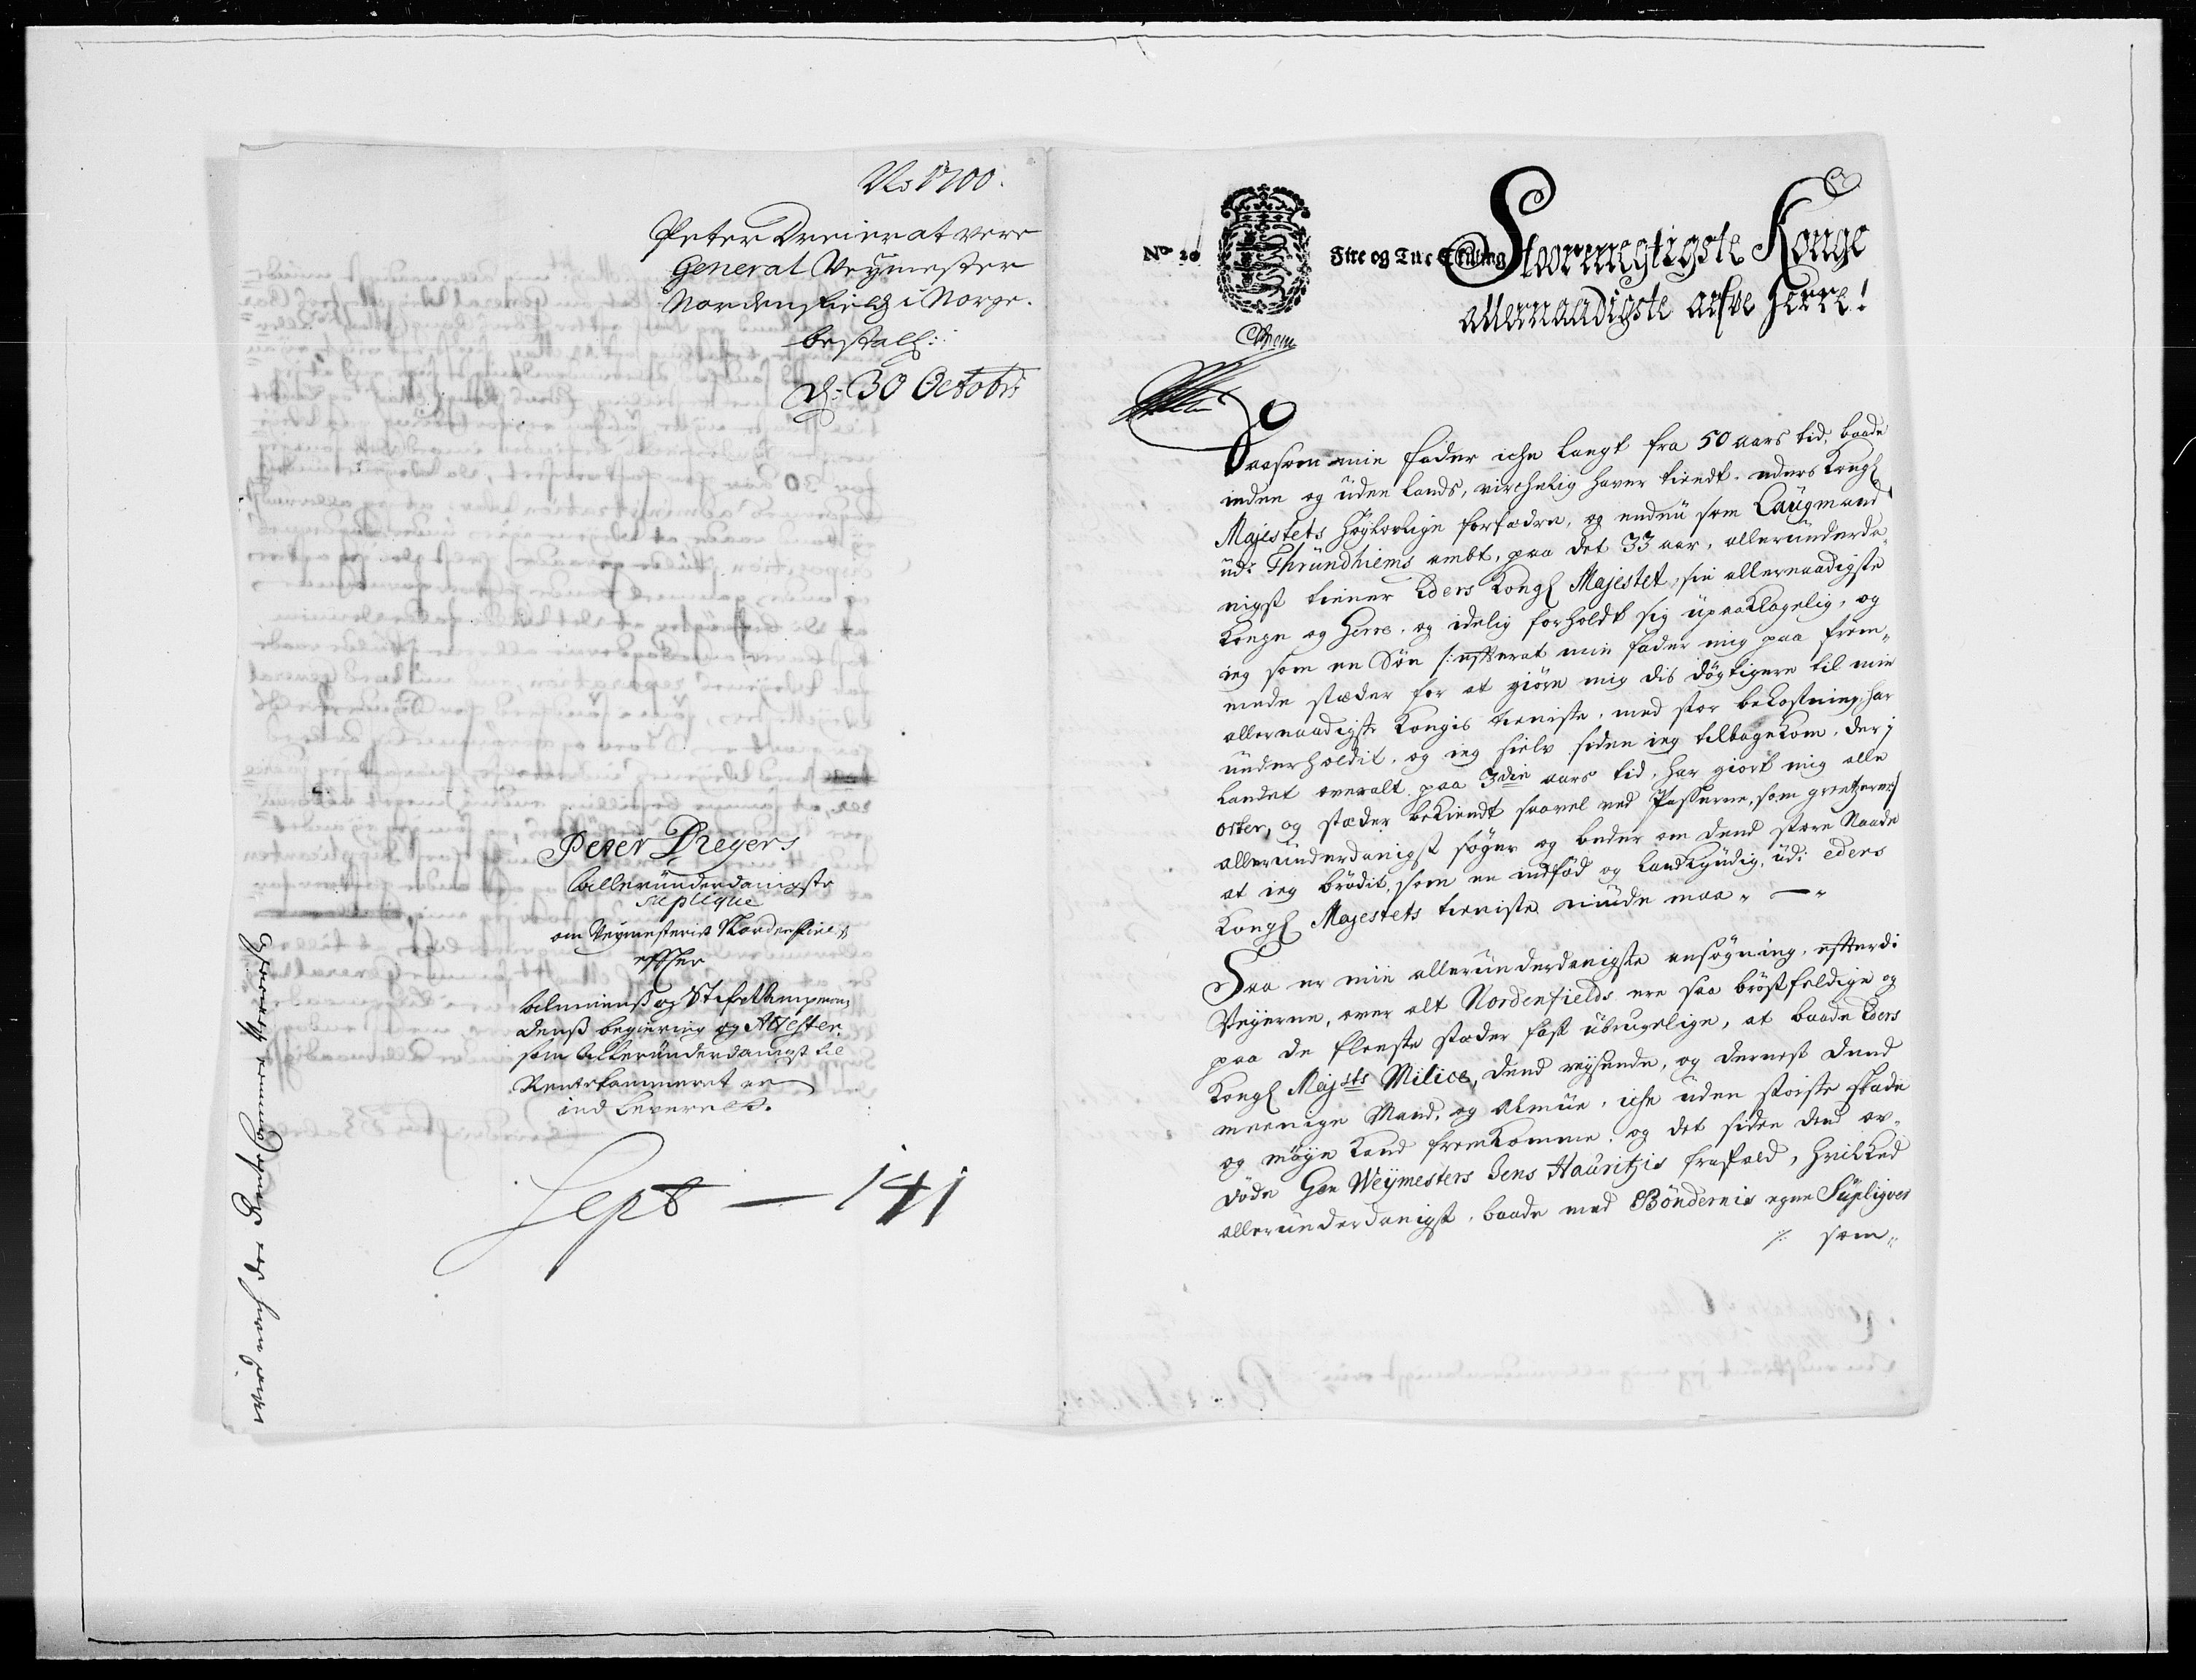 1700.
Peter Dreier at vere
General Veymester
Nordenfields i Norge.
bestall:
d: 30 Octobr:
Peter Dreyers
allerunderdanigste
suplique
om Veymesteriet Nordenfields
effter
Almuenß og Stifftampman,
denß begiering og Attester
som allerunderdanigst til
Rentekammeret er
ind leverede.
Sept — 141
No 20
Fire og Tiue Skilling
Stoormegtigste Konge
allernaadigste arfve Herre!
Saasom min fader iche langt fra 50 aars tid, baade
inden og uden lands, virchelig haver tient. eders Kongl
Majestets Høylovlige forfædre, og endnu som Laugmand
udi Thrundhiems ambt, paa det 33 aar, allerunderda,
nigst tiener Eders Kongl Majestet, sin allernaadigste
Konge og Herre. og idelig forholdt sig upaaklagelig, og
ieg som en Søn /: efterat min fader mig paa frem,,
mede stæder for at giøre mig dis døgtigere til min
allernaadigste Kongis tieniste, med stor bekostning har
underholdit, og ieg sielv siden ieg tilbagekom, der i
Landet overalt paa 3die aars tid, har giort mig alle
orter, og stæder bekiendt saavel ved Passerne, som grentzerne/
allerunderdanigst søger og beder om dend store Naade
at ieg brødit, som en indfød og Landkyndig, udi eders
Kongl Majestets tieniste niude maa ,, — ,,
Saa er min allerunderdanigste ansøgning, efterdi
Veyerne, over alt Nordenfields ere saa brøstfeldige og
paa de fleeste stæder fast ubrugelige, at baade Eders
Kongl Majsts Milice, dend reysende, og dernest dend
meenige Mand, og Almue, iche uden største skade
og møye kand fremkomme, og det siden dend av,,
døde Gen Weymesters Jens Hauritzis frafald, hvilked
allerunderdanigst, baade med Bøndernis egne Supliqver
./. som,,